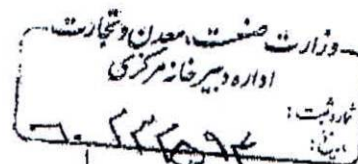 وزارت صنعت، معدن و تجارت
اداره دبیرخانه مرکزی
شماره ثبت:
تاریخ: